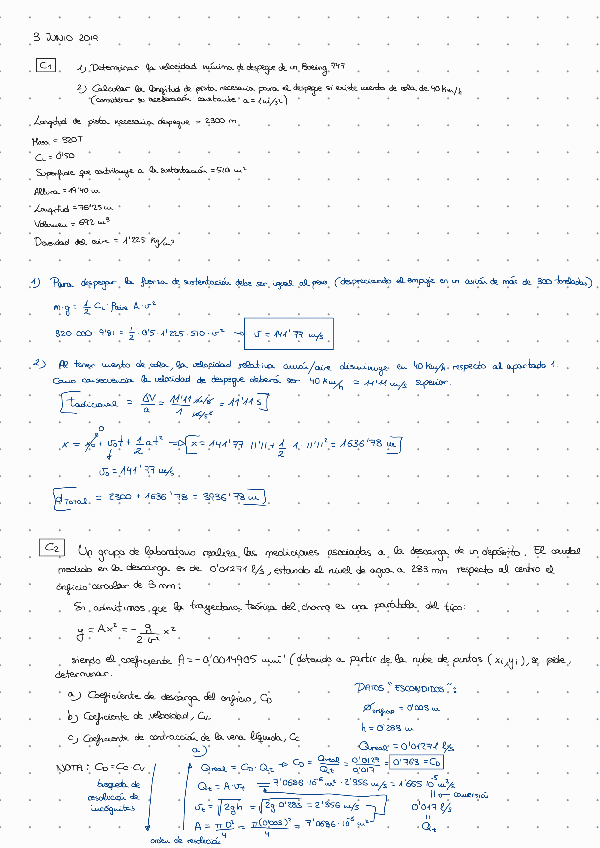 3 JUNIO 2019
C1 1) Determinar la velocidad mínima de despegue de un Boeing 747
2) Calcular la longitud de pista necesaria para el despegue si existe viento de cola de 40 Km/h
(considerar su aceleración constante a = 1 m/s²)
Longitud de pista necesaria despegue = 2300 m.
Masa = 320T
CL = 0'50
Superficie que contribuye a la sustentación = 510 m²
Altura = 19'40 m
Longitud = 76'25 m
Volumen = 692 m³
Densidad del aire = 1'225 Kg/m³
1) Para despegar la fuerza de sustentación debe ser igual al peso (despreciando el empuje en un avión de más de 300 toneladas)
m·g = 1/2 CL · ρaire A · v²
320 000 · 9'81 = 1/2 · 0'5 · 1'225 · 510 · v² → v = 141'77 m/s
2) Al tener viento de cola, la velocidad relativa avión/aire disminuye en 40 Km/h respecto al apartado 1.
Como consecuencia la velocidad de despegue deberá ser 40 Km/h = 11'11 m/s superior.
t adicional = ΔV/a = 11'11 m/s / 1 m/s² = 11'11 s
x = x₀ + v₀t + 1/2 at² ⇒ x = 141'77 · 11'11 + 1/2 · 1 · 11'11² = 1636'78 m
0
v₀ = 141'77 m/s
d TOTAL = 2300 + 1636'78 = 3936'78 m
C2 Un grupo de laboratorio realiza las mediciones asociadas a la descarga de un depósito. El caudal
medido en la descarga es de 0'01271 l/s, estando el nivel de agua a 283 mm respecto al centro el
orificio circular de 3 mm:
Si admitimos que la trayectoria teórica del chorro es una parábola del tipo:
y = Ax² = - g/2v² x²
siendo el coeficiente A = -0'0014905 mm⁻¹ (obtenido a partir de la nube de puntos (xi,yi), se pide,
determinar:
a) Coeficiente de descarga del orificio, CD
b) Coeficiente de velocidad, Cv
c) Coeficiente de contracción de la vena líquida, Cc
DATOS "ESCONDIDOS":
Ø orificio = 0'003 m
h = 0'283 m
Qreal = 0'01271 l/s
NOTA: CD = Cc · Cv
búsqueda de
resolución de
incógnitas
orden de resolución
a)
Qreal = CD · Qt → CD = Qreal/Qt = 0'0127/0'017 = 0'763 = CD
Qt = A · vt = 7'0686 · 10⁻⁶ m² · 2'356 m/s = 1'665 10⁻⁵ m³/s
vt = √2gh = √2g 0'283 = 2'356 m/s
A = πD²/4 = π(0'003)²/4 = 7'0686 · 10⁻⁶ m²
conversión
0'017 l/s
Qt